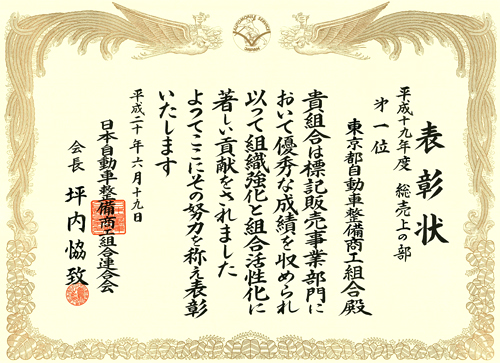 表彰状
平成十九年度 総売上の部
第一位
東京都自動車整備商工組合殿
貴組合は標記販売事業部門に
おいて優秀な成績を収められ
以って組織強化と組合活性化に
著しい貢献をされました
よってここにその努力を称え表彰
いたします
平成二十年六月十九日
日本自動車整備商工組合連合会
会長 坪内恊致